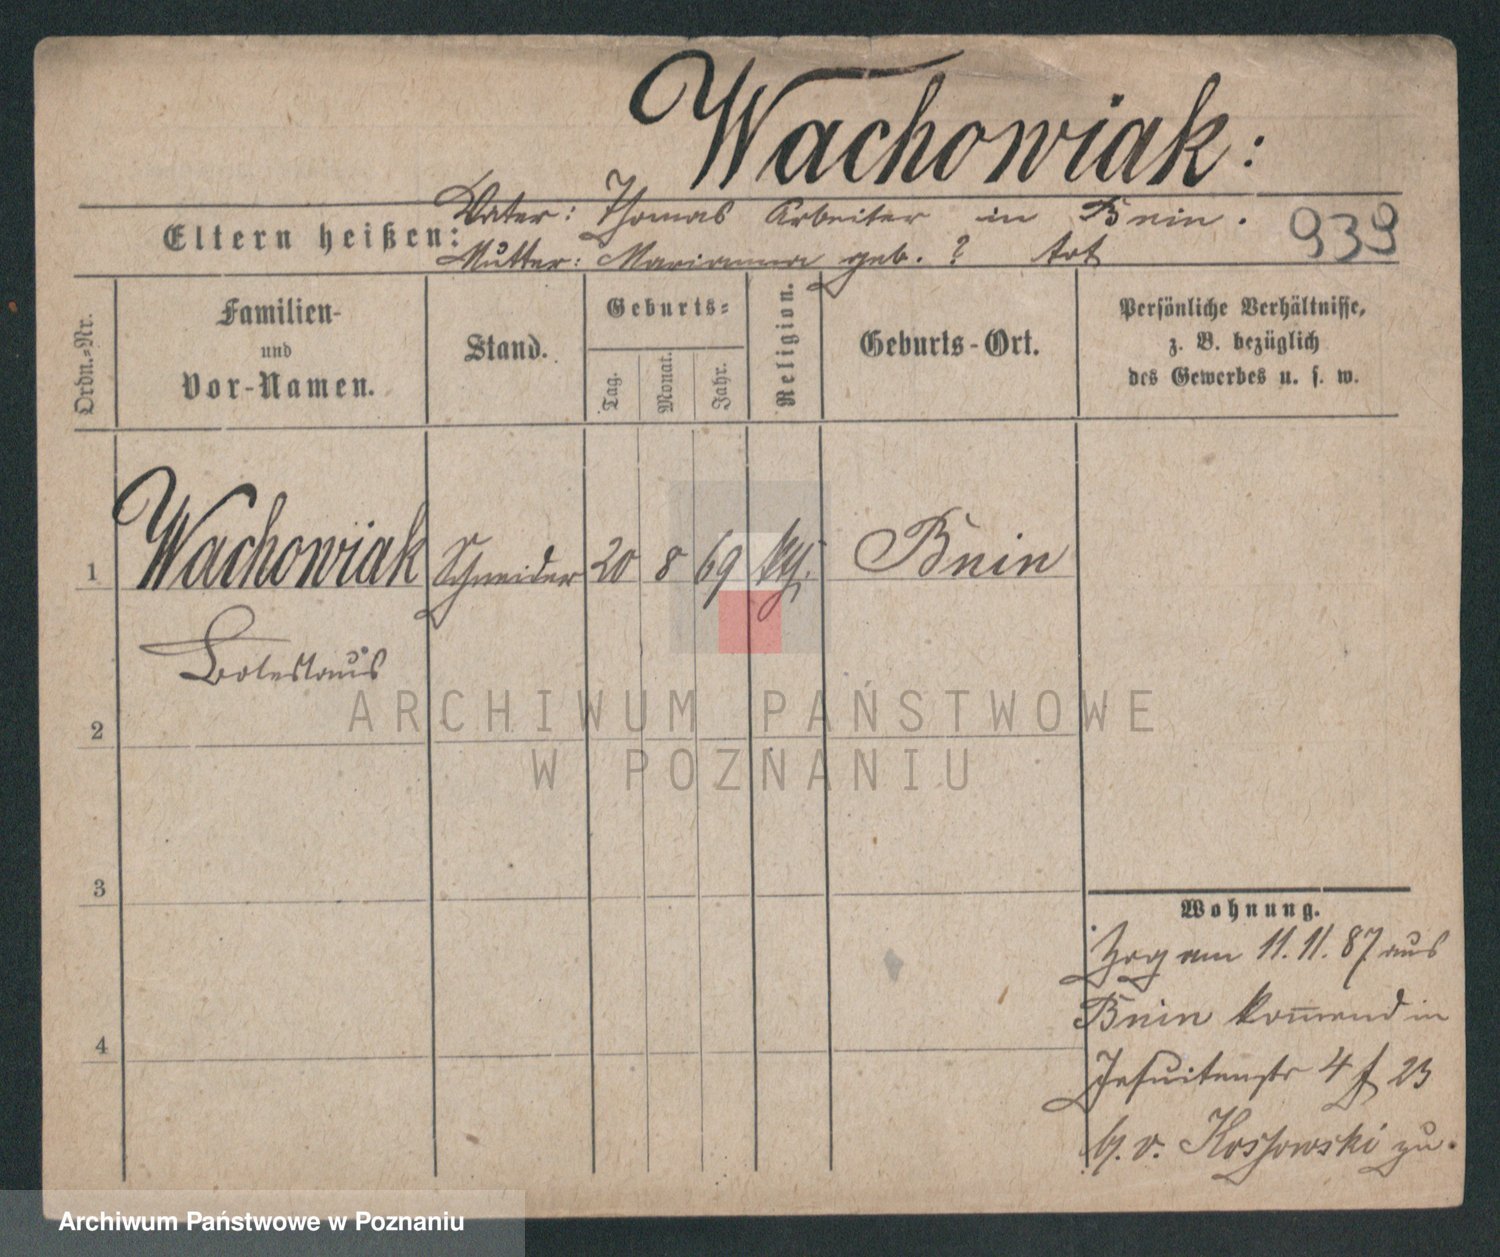 Wachowiak:
Eltern heißen: Vater: Thomas Arbeiter in Bnin.
Mutter: Marianna geb. ? tot
939
Ordn.-Nr.
Familien-
und
Vor-Namen.
Stand.
Geburts-
Tag.
Monat.
Jahr.
Religion.
Geburts-Ort.
Persönliche Verhältnisse,
z. B. bezüglich
des Gewerbes u. s. w.
1 Wachowiak Schneider 20 8 69 kth. Bnin
Boleslaus
2
3
4
Wohnung.
Zog am 11. 11. 87 aus
Bnin kom̅end in
Jesuitenstr 4 f 23
b. v. Kossowski zu.
ARCHIWUM PAŃSTWOWE
W POZNANIU
Archiwum Państwowe w Poznaniu